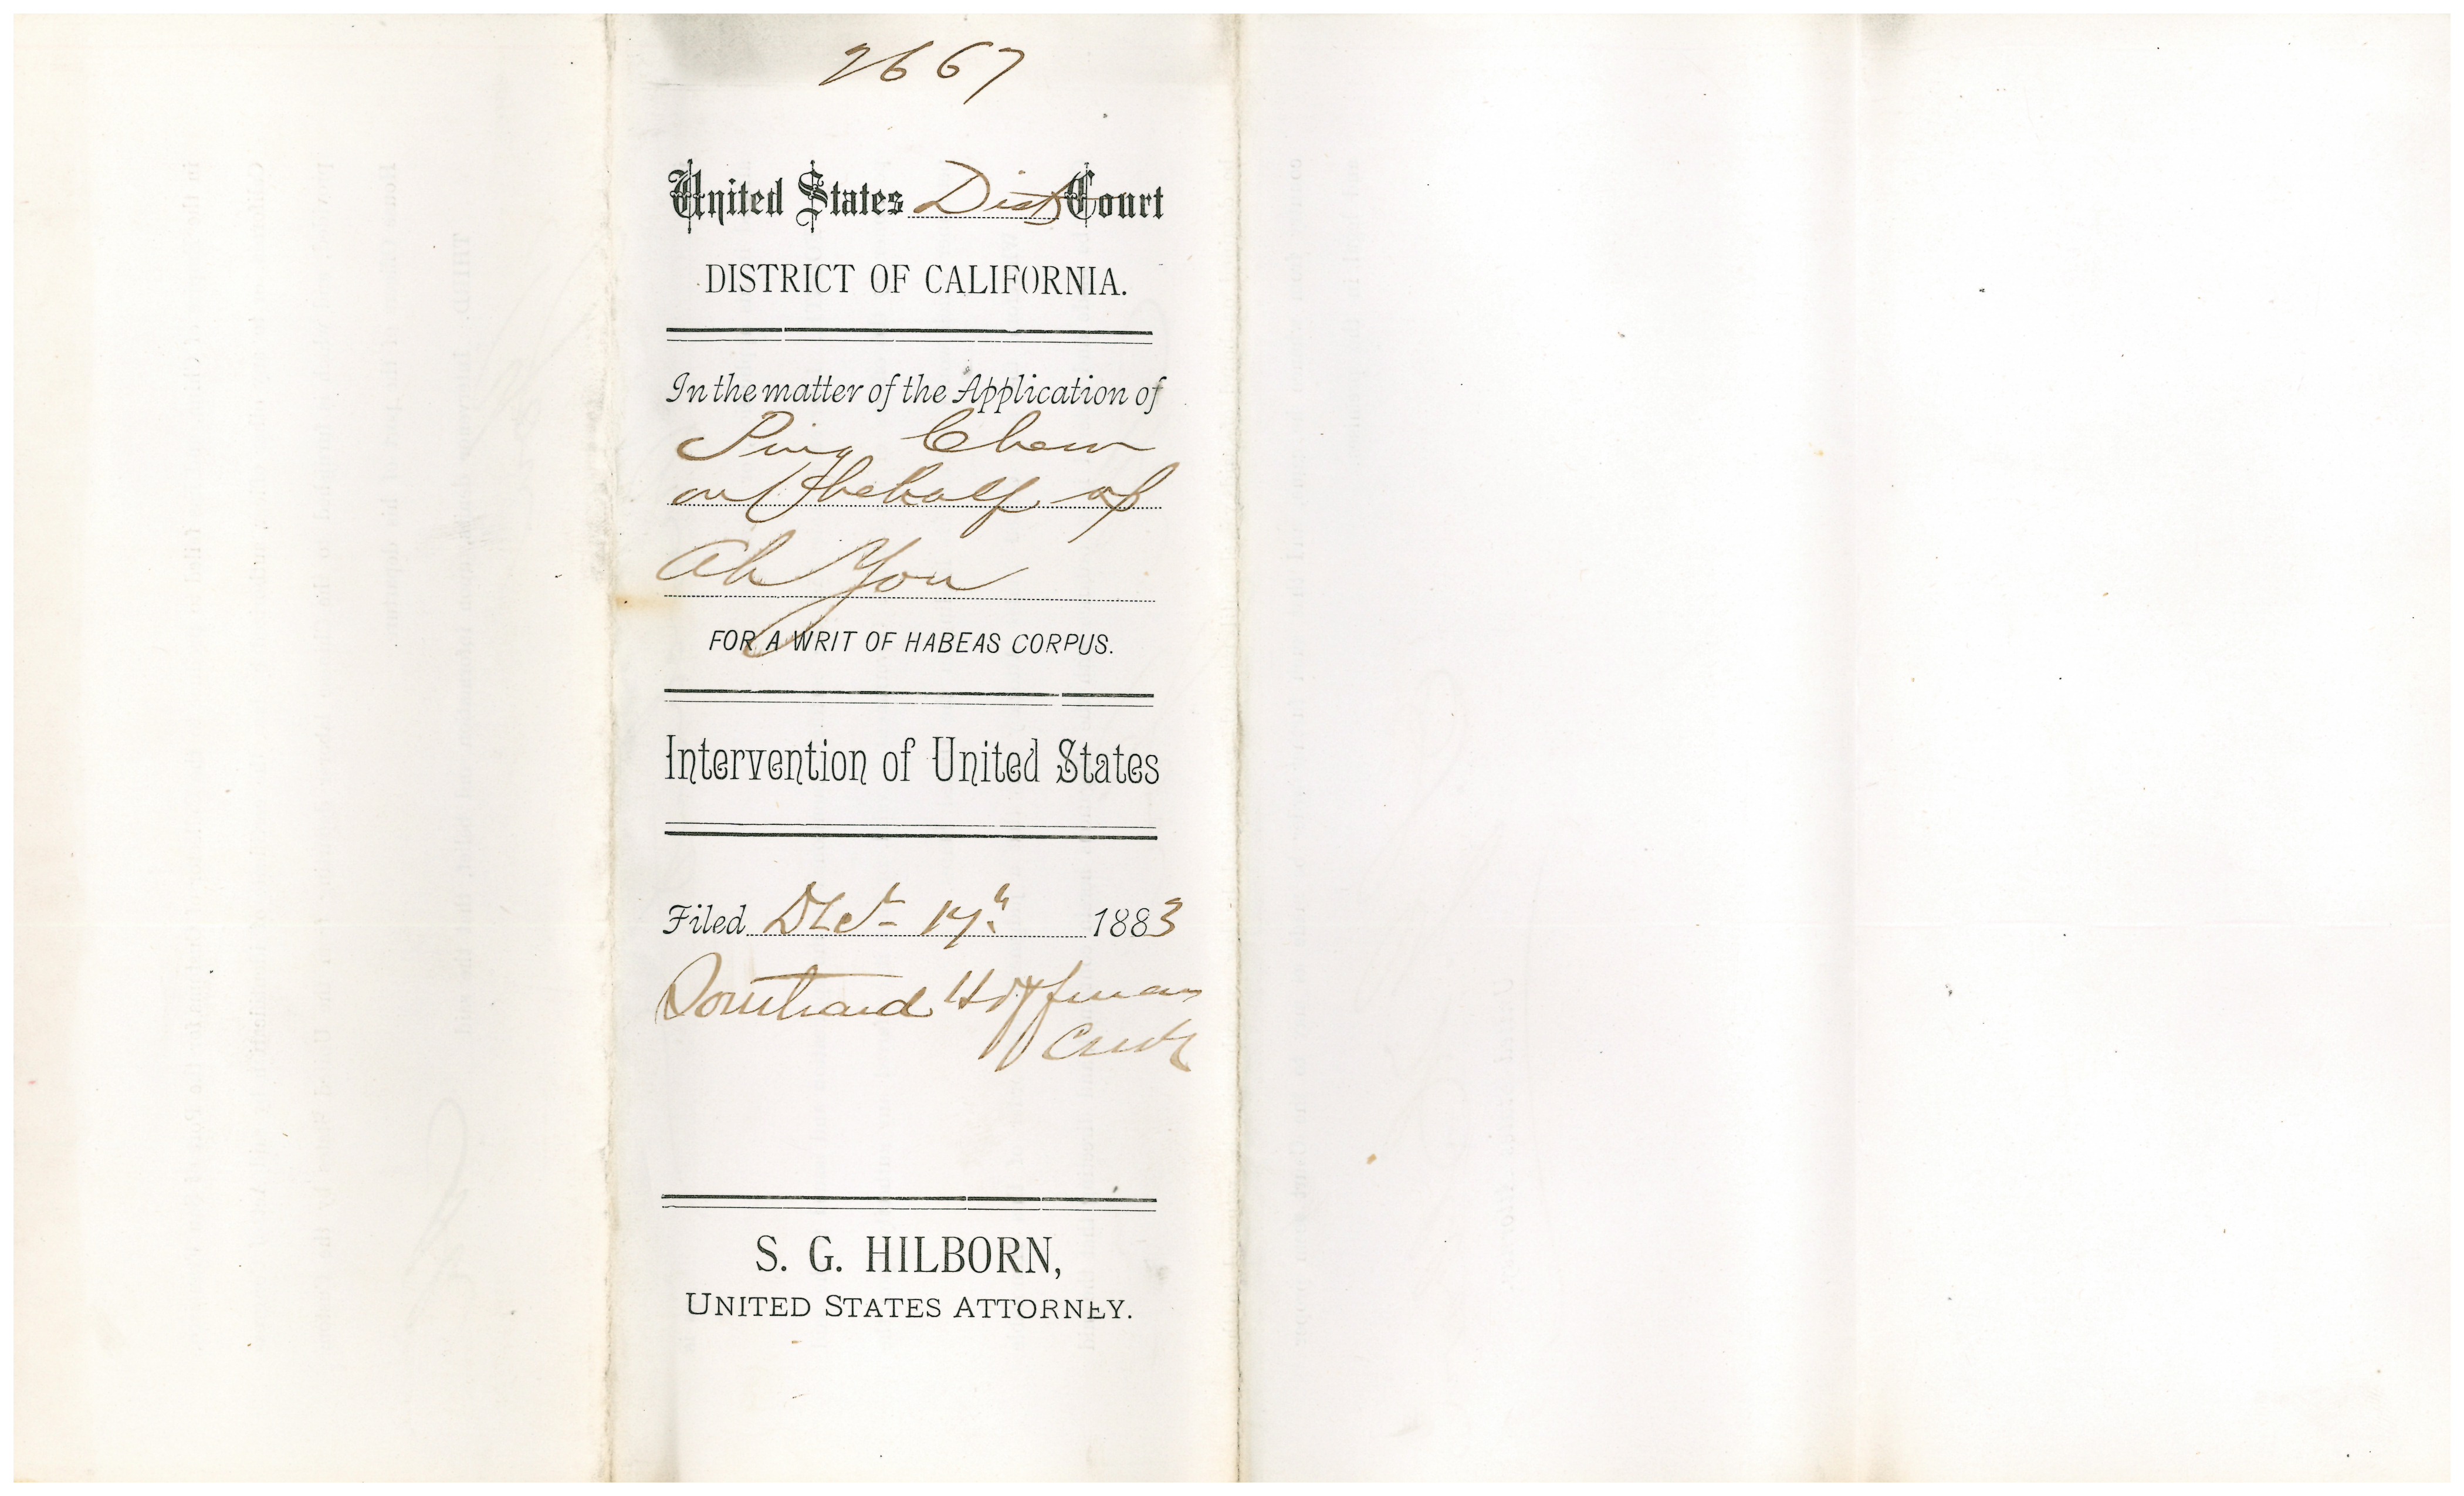 2667
United States Dist Court
DISTRICT OF CALIFORNIA.
In the matter of the Application of
Ping Chew
on behalf of
Ah You
FOR A WRIT OF HABEAS CORPUS.
Intervention of United States
Filed Dec 17th 1883
Southard Hoffman
Clerk
S. G. HILBORN,
UNITED STATES ATTORNEY.